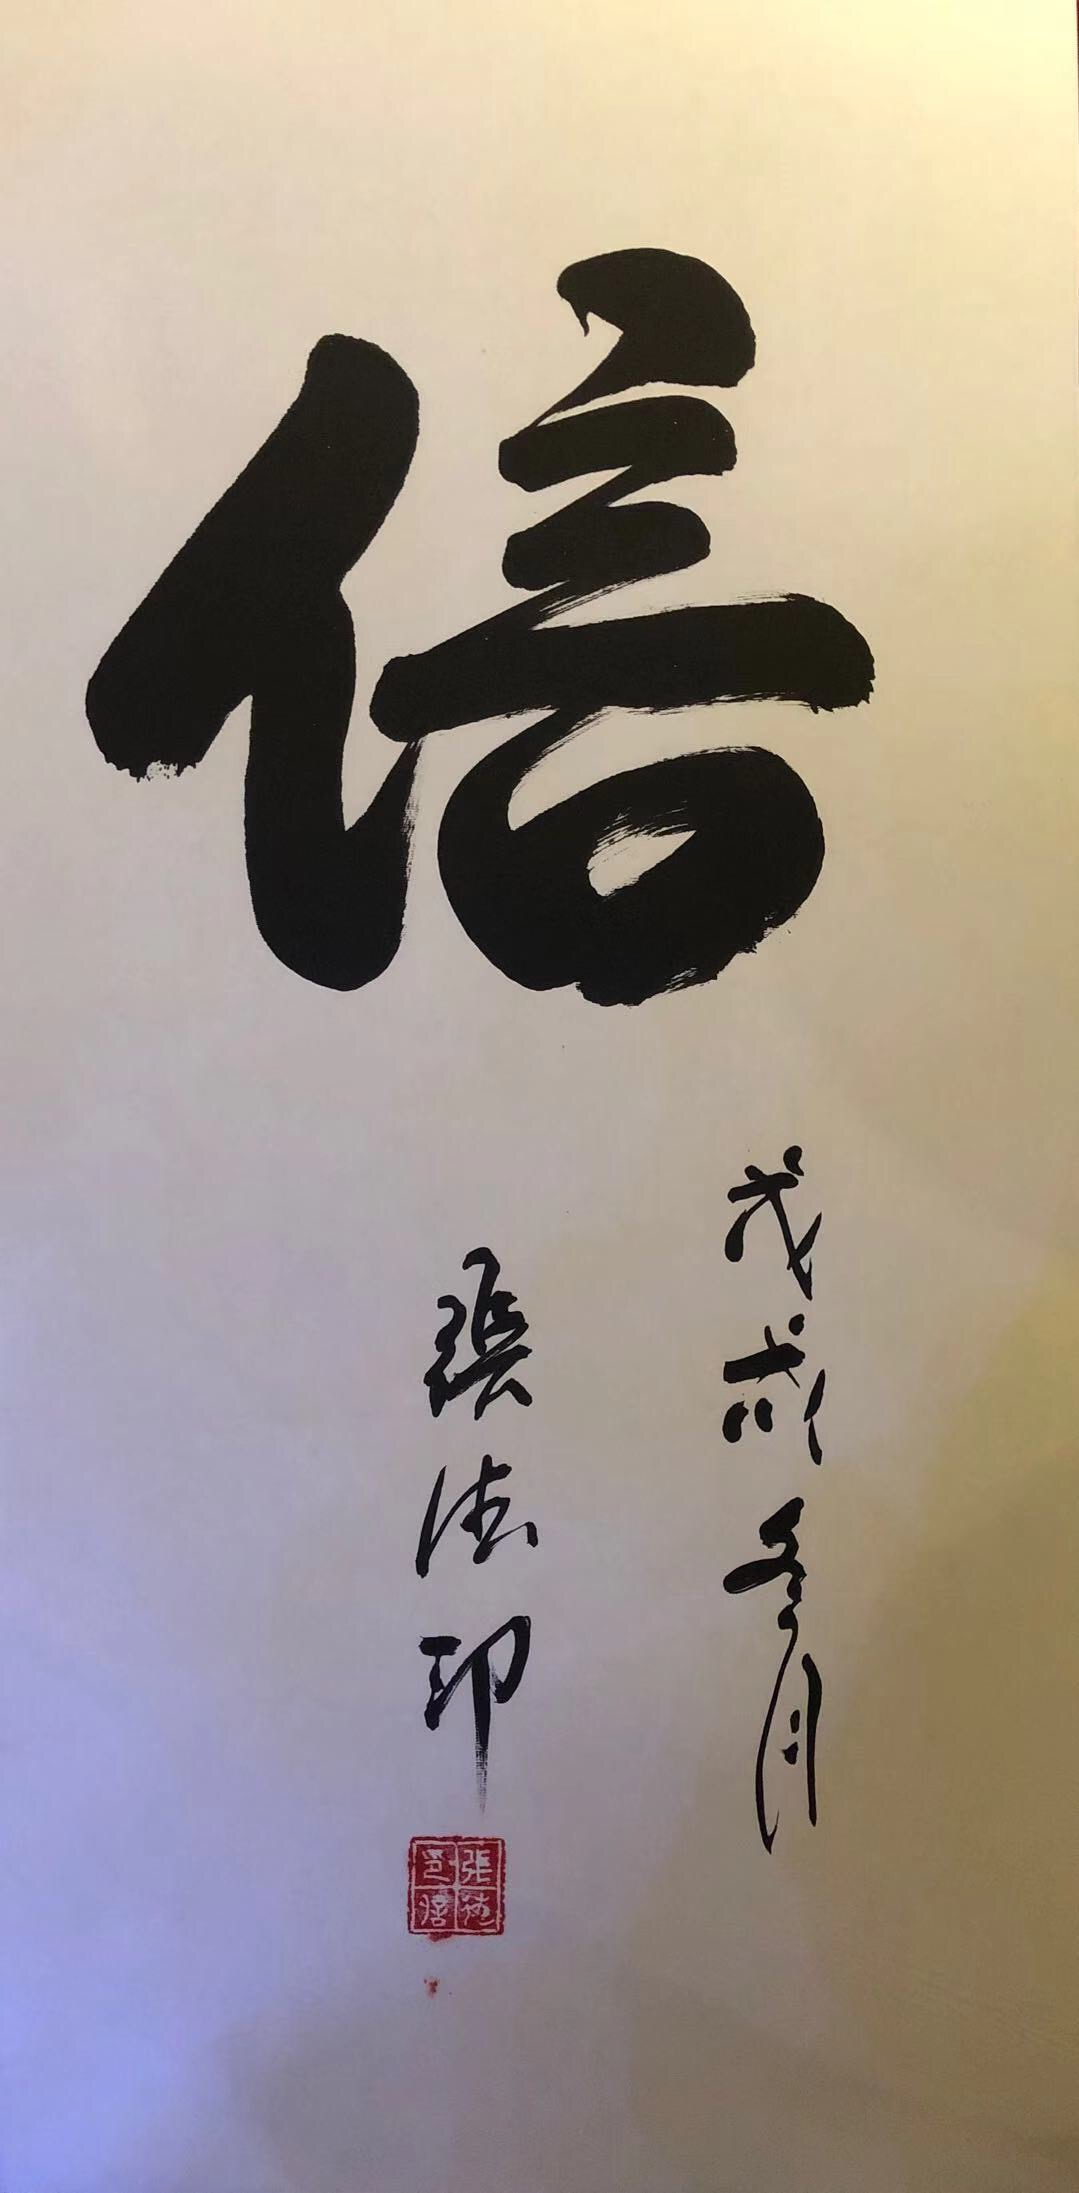 信
戊戌冬月
张法印